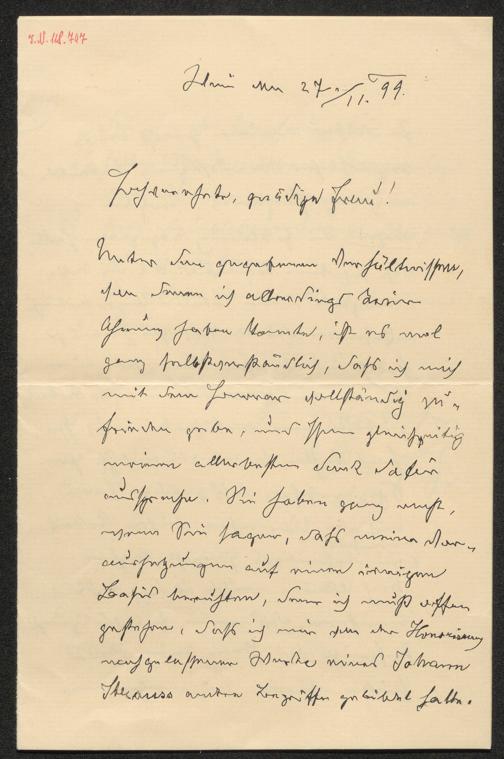 I.N.118.747
Wien am 27./11. 99.
Hochverehrte, gnädige Frau!
Unter den gegebenen Verhältnissen,
von denen ich allerdings keine
Ahnung haben konnte, ist es wol
ganz selbstverständlich, daß ich mich
mit dem Honorar vollständig zu-
frieden gebe, und Ihnen gleichzeitig
meinen allerbesten Dank dafür
ausspreche. Sie haben ganz recht,
wenn Sie sagen, daß meine Vor-
aussetzungen auf einer irrigen
Basis beruhten, denn ich muß offen
gestehen, daß ich mir von der Honorirung
nachgelassener Werke eines Johann
Strauss andere Begriffe gebildet hatte.